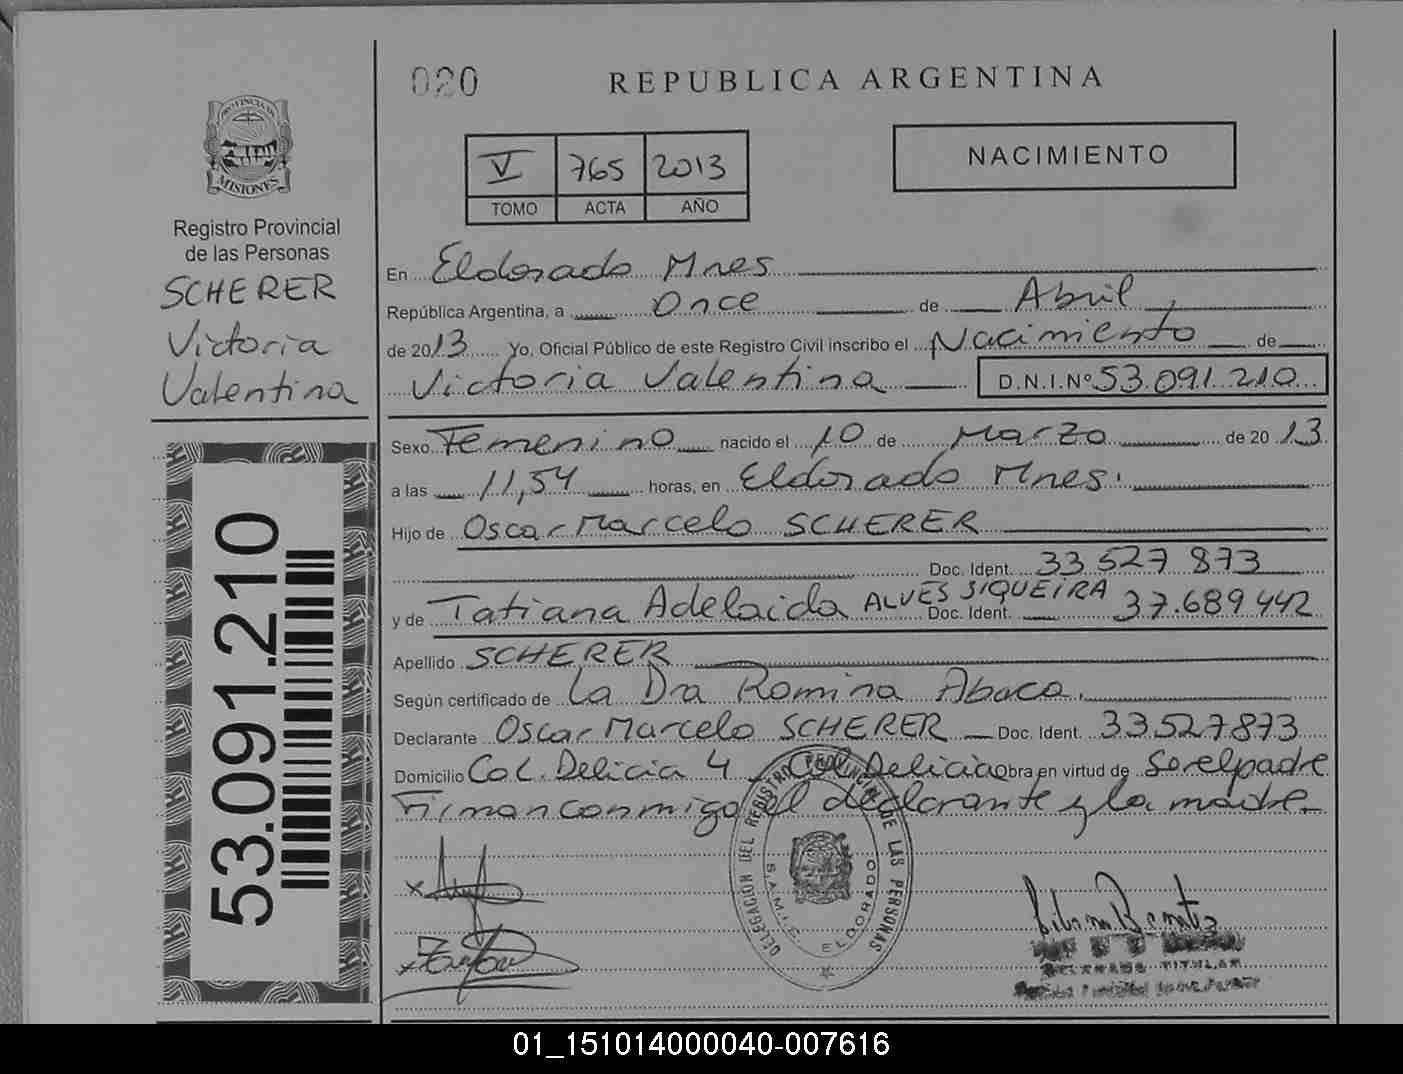 020
REPUBLICA ARGENTINA
V 765 2013
TOMO ACTA AÑO
NACIMIENTO
PROVINCIA DE
MISIONES
Registro Provincial
de las Personas
SCHERER
Victoria
Valentina
53.091.210
En Eldorado Mnes
República Argentina, a Once de Abril
de 2013 Yo, Oficial Público de este Registro Civil inscribo el Nacimiento de
Victoria Valentina D.N.I.Nº 53.091.210
Sexo Femenino nacido el 10 de Marzo de 2013
a las 11,54 horas, en Eldorado Mnes.
Hijo de Oscar Marcelo SCHERER
Doc. Ident. 33.527.873
y de Tatiana Adelaida ALVES SIQUEIRA Doc. Ident. 37.689.442
Apellido SCHERER
Según certificado de La Dra Romina Abaca.
Declarante Oscar Marcelo SCHERER Doc. Ident. 33.527.873
Domicilio Col. Delicia 4 Col. Delicia Obra en virtud de Ser el padre
Firman conmigo el declarante y la madre
DELEGACION DEL REGISTRO PROVINCIAL DE LAS PERSONAS
S.A.M.I.C. ELDORADO
TITULAR
01_151014000040-007616